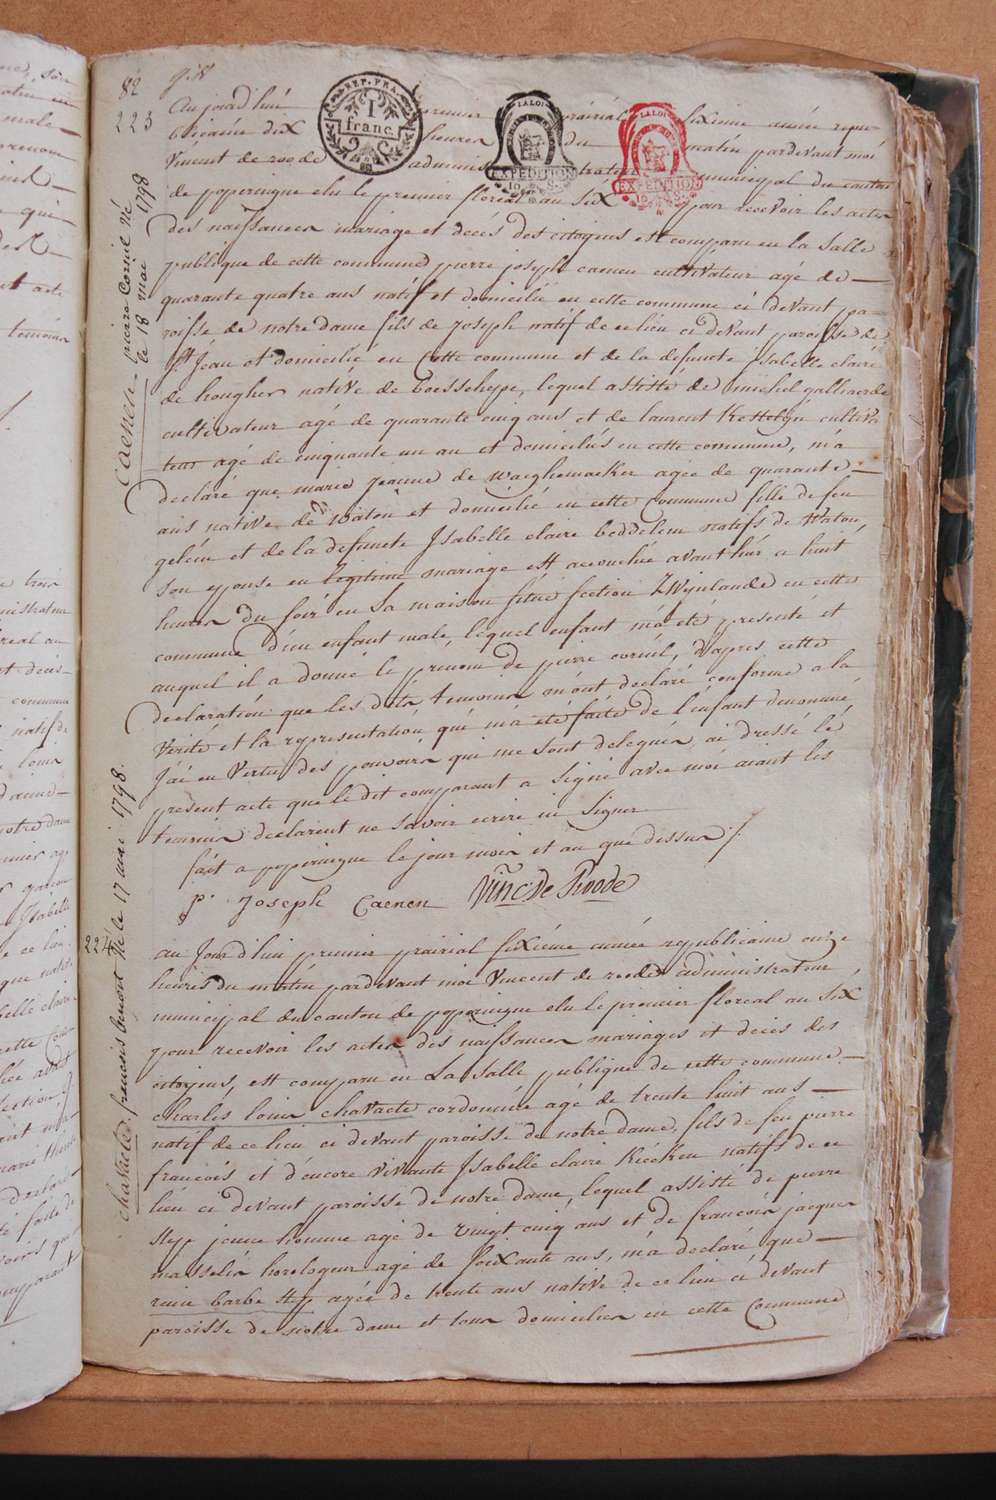 82
223
Caenen pierre Corniel Né
le 18 mai 1798
REP. FRA.
1
franc.
LA LOI
EXPEDITION
LA LOI
EXPEDITION
Aujourd'hui premier prairial sixieme année repu-
blicaine dix heures du matin pardevant moi
Vincent de roode administrateur municipal du canton
de poperingue elu le premier floreal an six pour recevoir les actes
des naissances mariage et decés des citoyens est comparu en la salle
publique de cette commune pierre joseph caenen cultivateur agé de
quarante quatre ans natif et domicilié en cette commune ci devant pa-
roisse de notre dame fils de Joseph natif de ce lieu ci devant paroisse de
St Jean et domicilié en cette commune et de la defuncte Isabelle claire
de hougher native de boeschepe, lequel assisté de michel galliaerde
cultivateur agé de quarante cinq ans et de laurent Kestelyn cultiva
teur agé de cinquante un an et domiciliés en cette commune, m'a
declaré que marie jeanne de Waeghemaeker agee de quarante
ans native de Waton et domicilié en cette commune fille de feu
gelein et de la defuncte Isabelle claire beddelem natifs de Waton,
son epouse en legitime mariage est accouchée avant hier a huit
heures du soir en sa maison située section Zwynlande en cette
commune d'un enfant male, lequel enfant m'a été presenté et
auquel il a donné le prenom de pierre corniel, d'apres cette
declaration que les dits temoins m'ont declaré conforme a la
verité et la representation qui m'a eté faite de l'enfant denommé
J'ai en vertu des pouvoirs qui me sont delegués, ai dressé le
present acte que le dit comparant a signé avec moi aiant les
temoins declarent ne savoir ecrire ni signer
fait a poperingue le jour mois et an que dessus
p. Joseph Caenen Vinct De Roode
224
chavaete francois benoit Né le 17 mai 1798.
au Jourd'hui premier prairial sixiéme année republicaine onze
heures du matin pardevant moi Vincent de roode administrateur
municipal du canton de poperingue elu le premier floreal an six
pour recevoir les actes des naissances mariages et decés des
citoyens, est comparu en La salle publique de cette commune
charles louis chavaete cordonnie agé de trente huit ans
natif de ce lieu ci devant paroisse de notre dame, fils de feu pierre
francois et d'encore vivante Isabelle claire Kiecken natifs de ce
lieu ci devant paroisse de notre dame, lequel assisté de pierre
Hyp jeune homme agé de vingt cinq ans et de francois jacques
masselis horlogeur agé de soixante ans, m'a declaré que
reine barbe Hyp agée de trente ans native de ce lieu ci devant
paroisse de notre dame et tous domicilies en cette commune